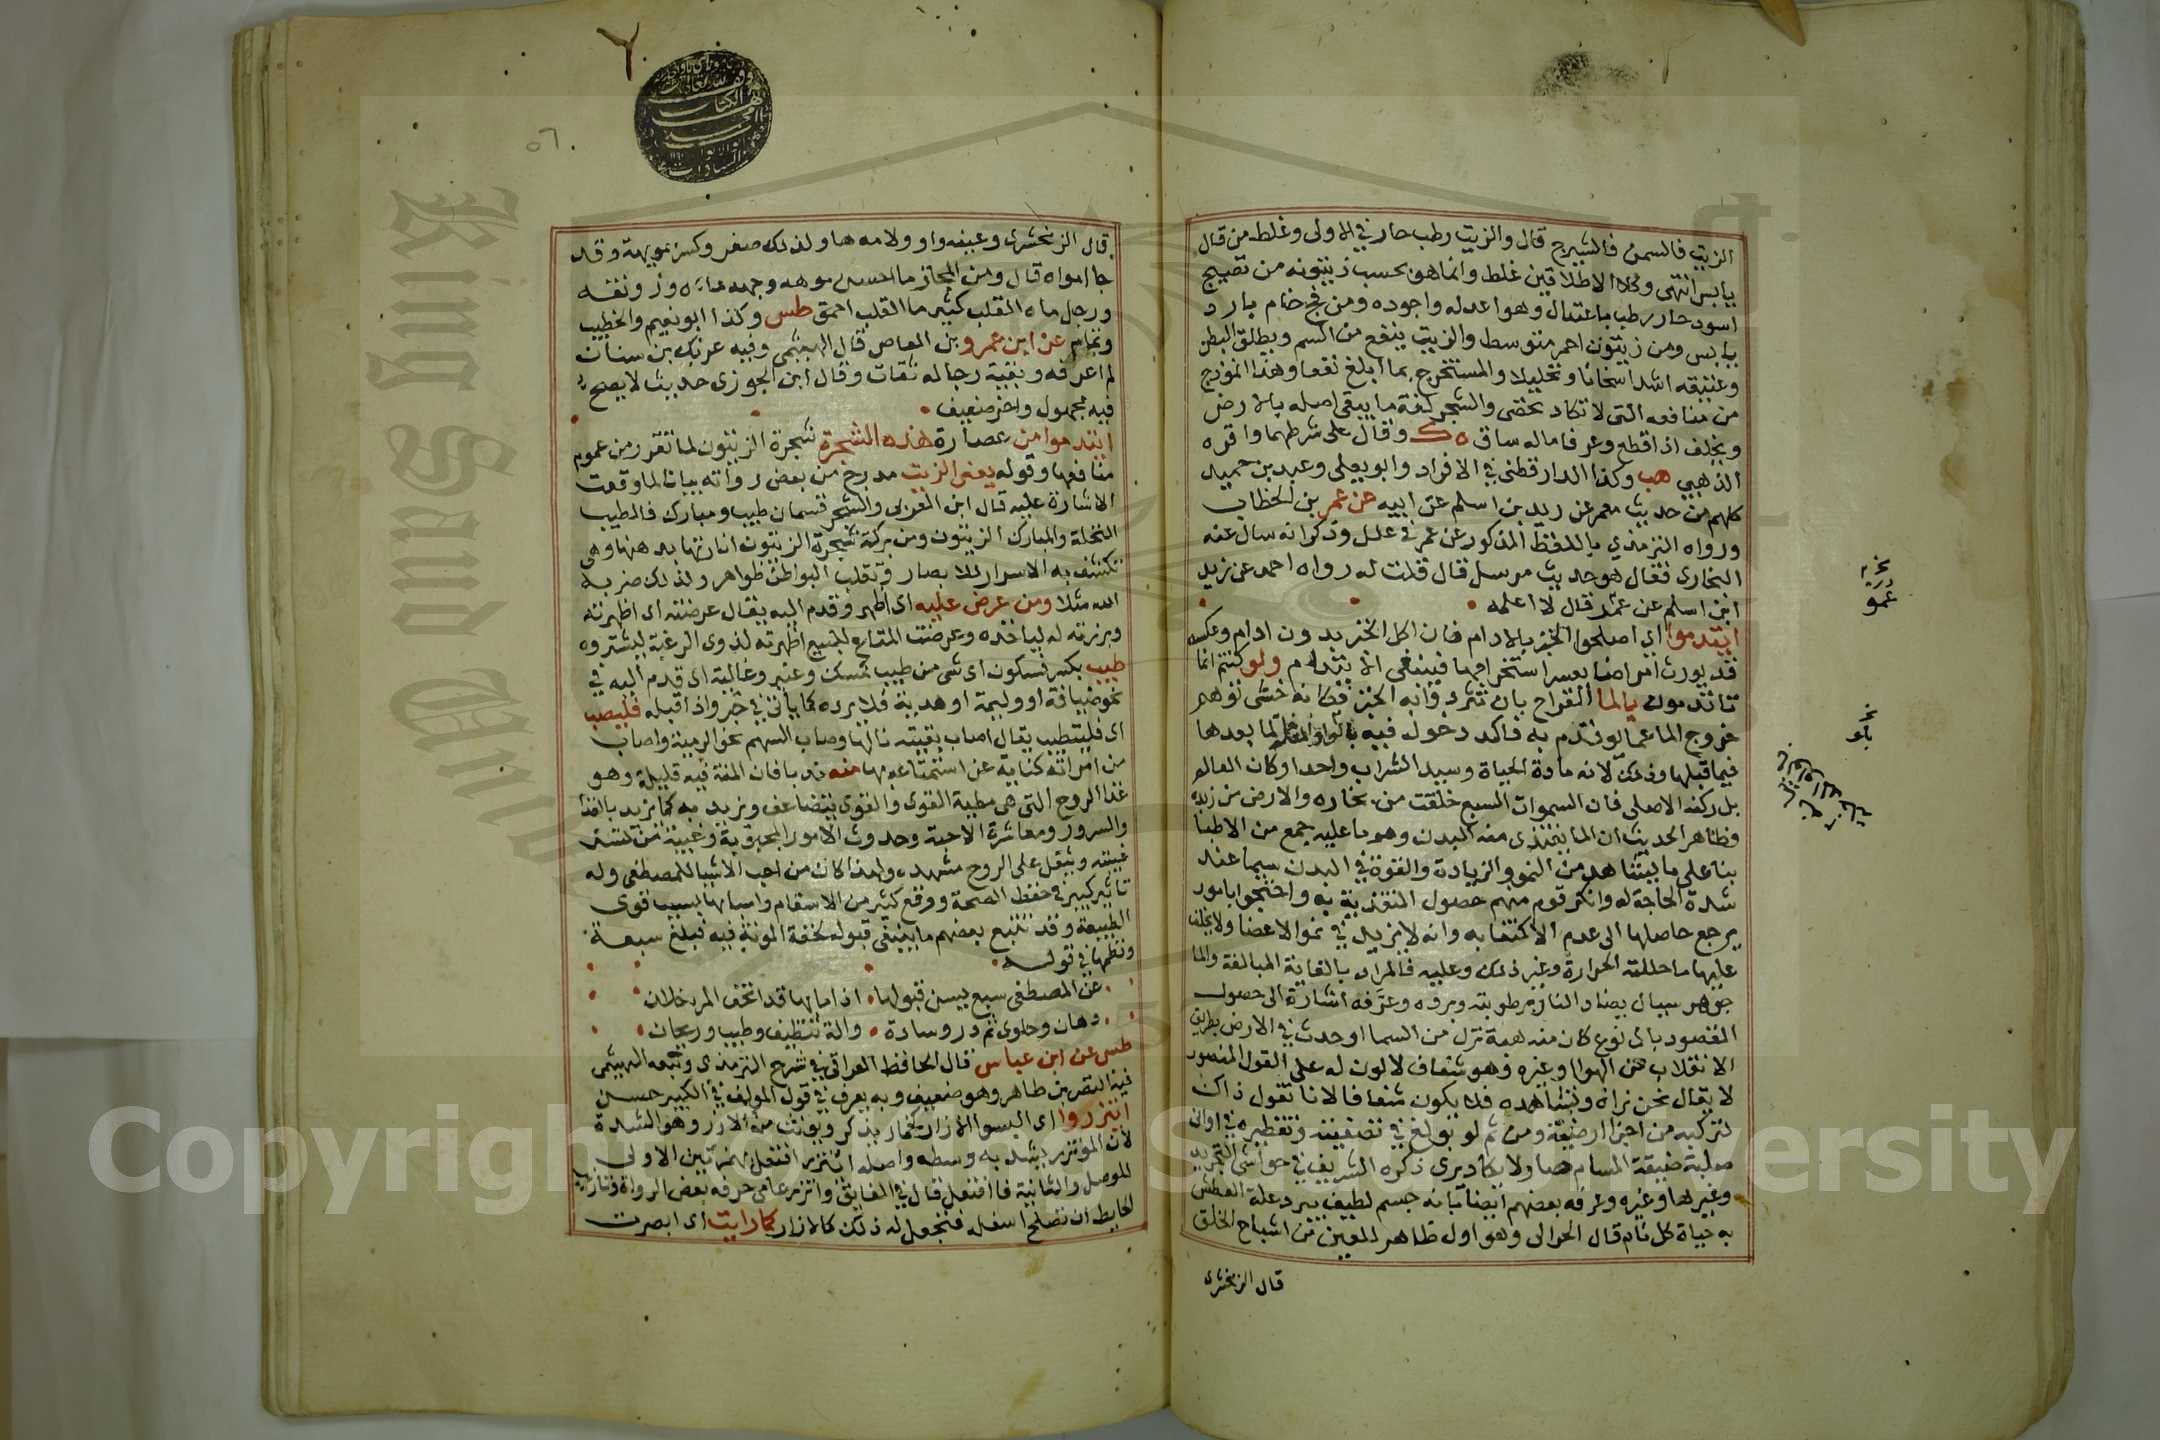 الزيت فالسمن فالشيرج قال والزيت رطب حار في الاولى وغلط من قال
يابس انتهى وكلا الاطلاقين غلط وانما هو بحسب زيتونه من نضيج
اسود حار رطب باعتدال وهو اعدله واجوده ومن فج خام بارد
يابس ومن زيتون احمر متوسط والزيت ينفع من السم ويطلق البطن
وعتيقه اشد اسخانا وتحليلا والمستخرج بما ابلغ نفعا وهذا انموذج
من منافعه التي لا تكاد تحصى والشجر لغة ما يبقى اصله بالارض
ويخلف اذا قطع وعرفا ماله ساق ه ك وقال على شرطهما واقره
الذهبي هب وكذا الدارقطني في الافراد وابو يعلى وعبد بن حميد
كلهم من حديث معمر عن زيد بن اسلم عن ابيه عن عمر بن الخطاب
ورواه الترمذي باللفظ المذكور عن عمر في علل وذكر انه سال عنه
البخاري فقال هو حديث مرسل قال قلت له رواه احمد عن زيد
ابن اسلم عن عمر قال لا اعلمه
ايتدموا اي اصلحوا الخبز بالادام فان اكل الخبز بدون ادام وعكسه
قد يورث امراضا يعسر استخراجها فينبغي الايتدام ولو كنتم انما
تاتدمون بالما القراح بان تثرد وابه الخبز فكانه خشى توهم
خروج الما عما لو تقدم به فاكد دخول فيه بالواو لما بعدها
فيما قبلها وذلك لانه مادة الحياة وسيد الشراب واحد اركان العالم
بل ركنه الاصلى فان السموات السبع خلقت من بخاره والارض من زبده
وظاهر الحديث ان الما يتغذى منه البدن وهو ما عليه جمع من الاطبا
بنا على ما يشاهد من النمو والزيادة والقوة في البدن سيما عند
شدة الحاجة له وانكر قوم منهم حصول التغذية به واحتجوا بامور
يرجع حاصلها الى عدم الاكتفا به وانه لا يزيد في نمو الاعضا ولا يخلف
عليها ما حللته الحرارة وغير ذلك وعليه فالمراد بالغاية المبالغة والما
جوهر سيال يضاد النار برطوبته وبرده وعرفه اشارة الى حصول
المقصود باى نوع كان منه همة نزل من السما او حدث في الارض بطريق
الانقلاب عن الهوا وغيره وهو شفاف لا لون له على القول المنصور
لا يقال نحن نراه ونشاهده فلا يكون شفافا لانا نقول ذاك
لتركبه من اجزا ارضية ومن ثم لو بولغ في تصفيته وتقطيره في اوان
صلبة ضيقة المسام صفا ولا يكاد يرى ذكره الشريف في حواشي التجريد
وغيرها وغيره وعرفه بعضهم ايضا بانه جسم لطيف يبرد علة العطش
به حياة كل نام قال الحرالى وهو اول ظاهر للعين من اشباح الخلق
قال الزمخشرى
نخرير
عمر
نخر
بلو
قال الزمخشرى وعينه واو ولامه ها ولذلك صغر وكسر بمويهة وقد
جا امواه قال ومن المجاز ما احسن موهه وجهه ماءه ورونقه
ورجل ماه القلب كثير ما القلب احمق طس وكذا ابو نعيم والخطيب
وتمام عن ابن عمرو بن العاص قال الهيثمي وفيه عزيك بن سنان
لم اعرفه وبقية رجاله ثقات وقال ابن الجوزى حديث لا يصح
فيه مجهول واخر ضعيف
ايتدموا من عصارة هذه الشجرة شجرة الزيتون لما تقرر من عموم
منافعها وقوله يعنى الزيت مدرج من بعض رواته بيانا لما وقعت
الاشارة عليه قال ابن العربي والشجر قسمان طيب ومبارك فالطيب
النخلة والمبارك الزيتون ومن بركة شجرة الزيتون انارتها بدهنها وهي
تكشف به الاسرار للابصار وتقلب البواطن ظواهر ولذلك ضربه
الله مثلا ومن عرض عليه اى اظهر وقدم اليه يقال عرضته اى اظهرته
وبرزته له لياخذه وعرضت المتاع للبيع اظهرته لذوى الرغبة ليشتروه
طيب بكسر فسكون اى شى من طيب كمسك وعنبر وغالية اى قدم اليه في
نحو ضيافة او وليمة او هدية فلا يرده كما ياتي في خبر واذا قبله فليصب
اى فليتطيب يقال اصاب بغيته نالها وصاب السهم نحو الرمية واصاب
من امراته كناية عن استمتاعه بها منه ندبا فان المنة فيه قليلة وهو
غذا الروح التي هي مطية القوى والقوى يتضاعف ويزيد به كما يزيد بالغذا
والسرور ومعاشرة الاحبة وحدوث الامور المحبوبة وغيبة من تسر
غيبته ويثقل على الروح مشهده ولهذا كان من احب الاشيا للمصطفى وله
تاثير كبير في حفظ الصحة ودفع كثير من الاسقام واسبابها بسبب قوى
الطبيعة وقد تتبع بعضهم ما ينبغي قبوله لخفة المونة فيه فبلغ سبعة
ونظمها في قوله
عن المصطفى سبع يسن قبولها اذا ما بها قد اتحف المر خلان
دهان وحلوى ثم در وسادة والة تنظيف وطيب وريحان
طس عن ابن عباس قال الحافظ العراقي في شرح الترمذى وتبعه الهيثمى
فيه النضر بن طاهر وهو ضعيف وبه يعرف في قول المولف في الكبير حسن
ايتزروا اى البسوا الازار كخمار يذكر ويونث من الازر وهو الشدة
لان الموتزر يشد به وسطه واصله ائتزر افتعل بهمزتين الاولى
للوصل والثانية فا افتعل قال في الفايق واتزر عامى حرفه بعض الرواة وتازير
الحايط ان تصلح اسفله فتجعل له ذلك كالازار كما رايت اى ابصرت